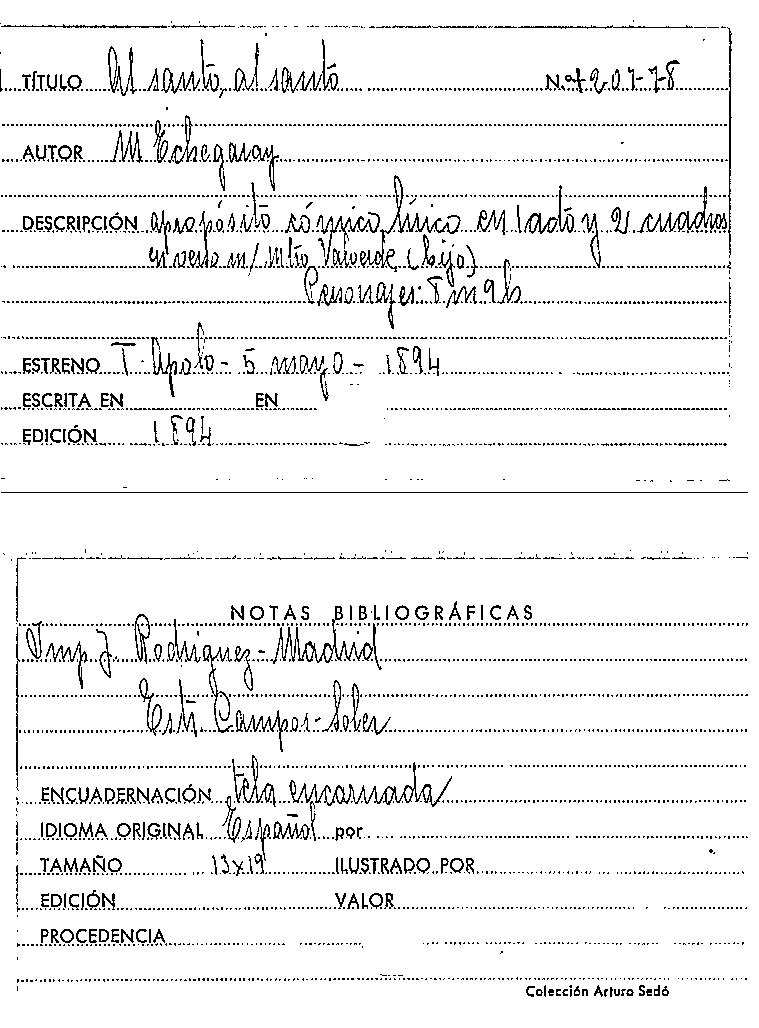 TÍTULO Al santo, al santo N.º 4207-78
AUTOR M Echegaray
DESCRIPCIÓN apropósito cómico lírico en 1 acto y 2 cuadros
en verso m/ mtro Valverde (hijo)
Personajes: 8 m 9 h
ESTRENO T. Apolo - 5 mayo - 1894
ESCRITA EN EN
EDICIÓN 1894
NOTAS BIBLIOGRÁFICAS
Imp J. Rodriguez - Madrid
Estr. Campos - Soler
ENCUADERNACIÓN tela encarnada
IDIOMA ORIGINAL Español por
TAMAÑO 13x19 ILUSTRADO POR
EDICIÓN VALOR
PROCEDENCIA
Colección Arturo Sedó